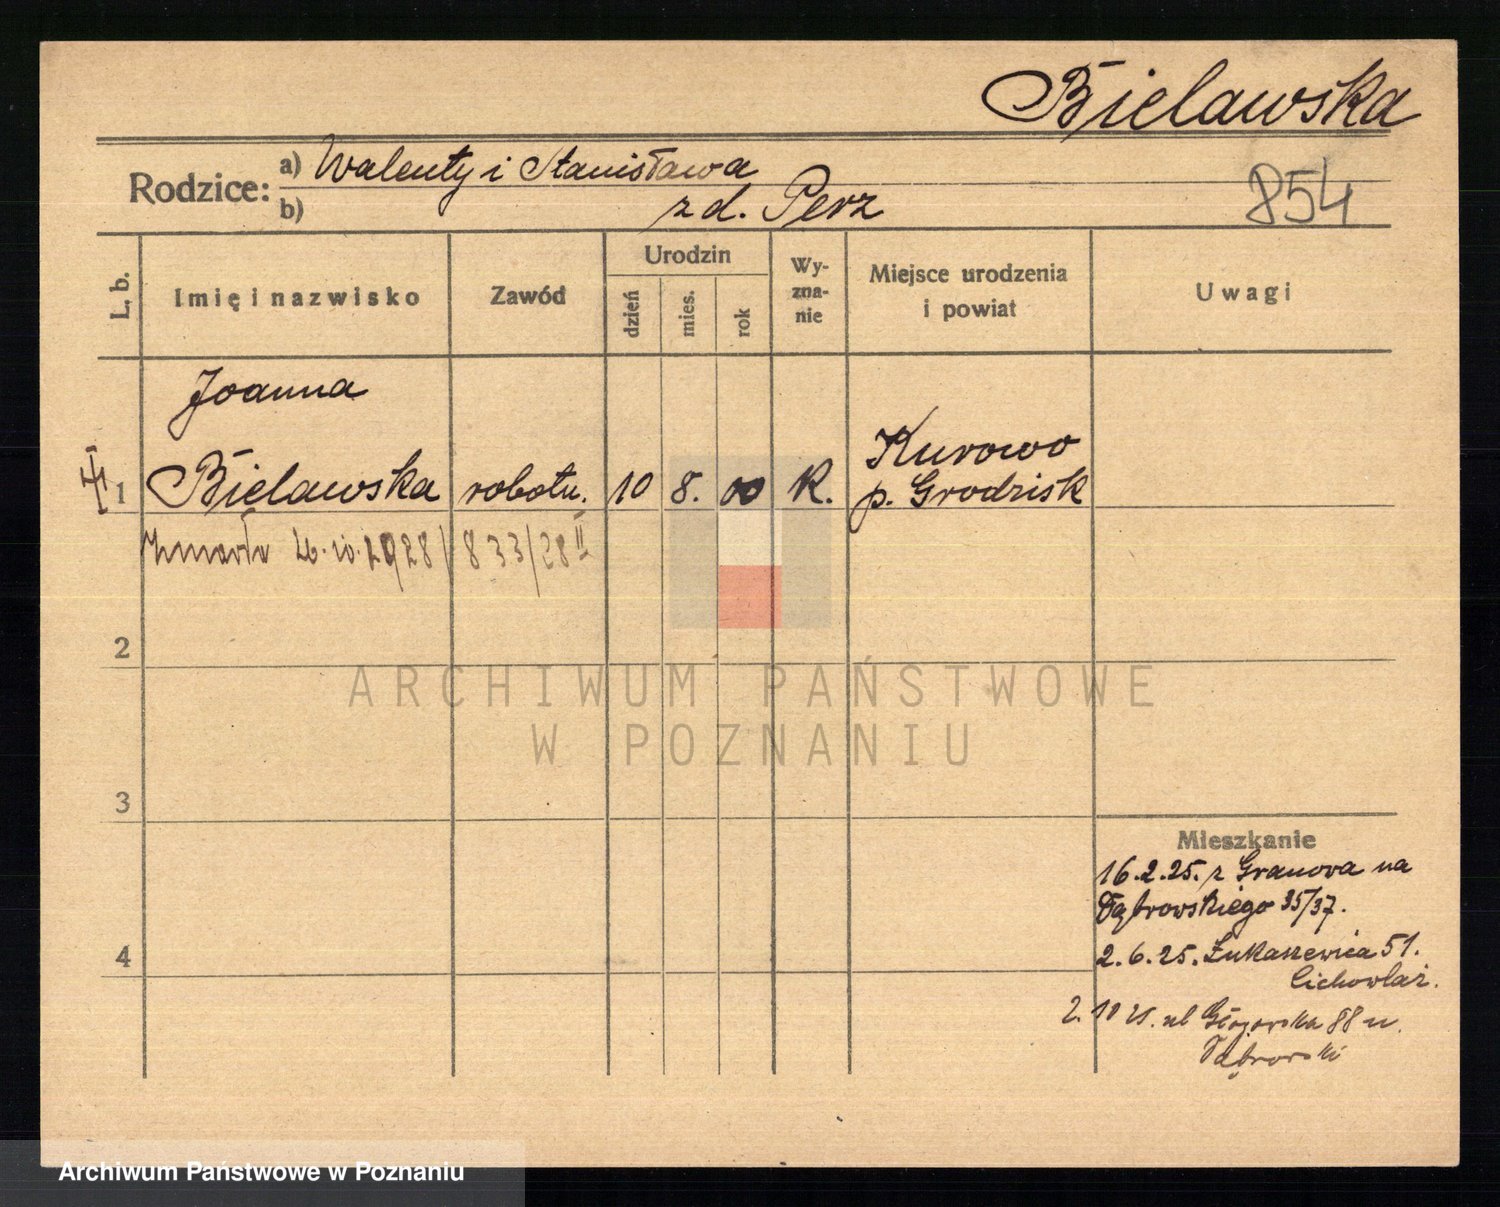 Bielawska
Rodzice: a) Walenty i Stanisława
b) zd. Perz
854
L. b.
Imię i nazwisko
Zawód
Urodzin
dzień
mies.
rok
Wy-
zna-
nie
Miejsce urodzenia
i powiat
Uwagi
Joanna
1 Bielawska robotn. 10 8. 00 R. Kurowo
p. Grodzisk
Zmarła 26.10.1928 / 833/28 II
2
ARCHIWUM PAŃSTWOWE
W POZNANIU
3
Mieszkanie
16.2.25. z Granova na
Dąbrowskiego 35/37.
4
2.6.25. Łukaszewicza 51.
Cichowlaz.
2.10 25. ul Głogowska 88 u
Dąbrowski
Archiwum Państwowe w Poznaniu